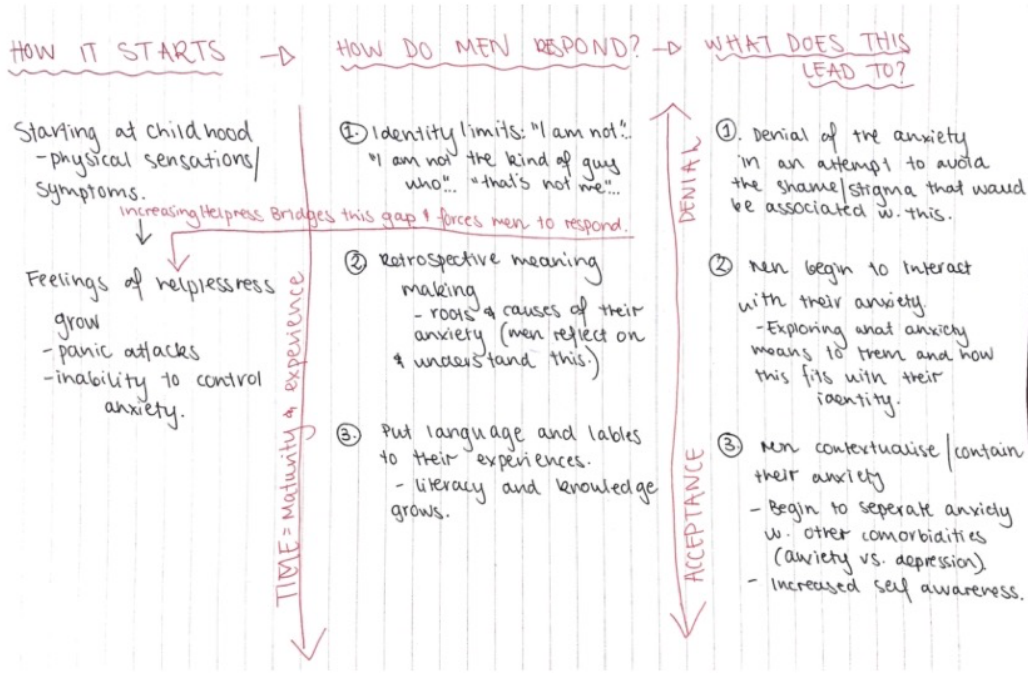 HOW IT STARTS → HOW DO MEN RESPOND? → WHAT DOES THIS
LEAD TO?
Starting at childhood
-physical sensations/
symptoms.
↓
Feelings of helplessness
grow
-panic attacks
-inability to control
anxiety.
Increasing Helpress Bridges this gap & forces men to respond.
TIME = Maturity & experience
①. Identity limits: "I am not"..
"I am not the kind of guy
who".. "that's not me"...
② Retrospective meaning
making
- roots & causes of their
anxiety (men reflect on
& understand this.)
③. Put language and lables
to their experiences.
- literacy and knowledge
grows.
DENIAL
ACCEPTANCE
①. Denial of the anxiety
in an attempt to avoid
the shame/stigma that would
be associated w. this.
② Men begin to interact
with their anxiety.
-Exploring what anxiety
means to them and how
this fits with their
identity.
③. Men contextualise/contain
their anxiety
- Begin to seperate anxiety
w. other comorbidities
(anxiety vs. depression)
- Increased self awareness.